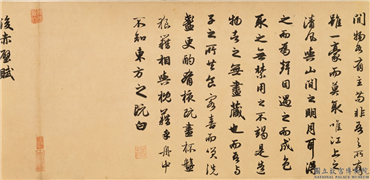 間物各有主苟非吾之所有
雖一毫而莫取惟江上之
清風與山間之明月耳得
之而為聲目遇之而成色
取之無禁用之不竭是造
物者之無盡藏也而吾與
子之所共食客喜而笑洗
盞更酌肴核既盡杯盤
狼藉相與枕藉乎舟中
不知東方之既白
後赤壁賦
國立故宮博物院
NATIONAL PALACE MUSEUM